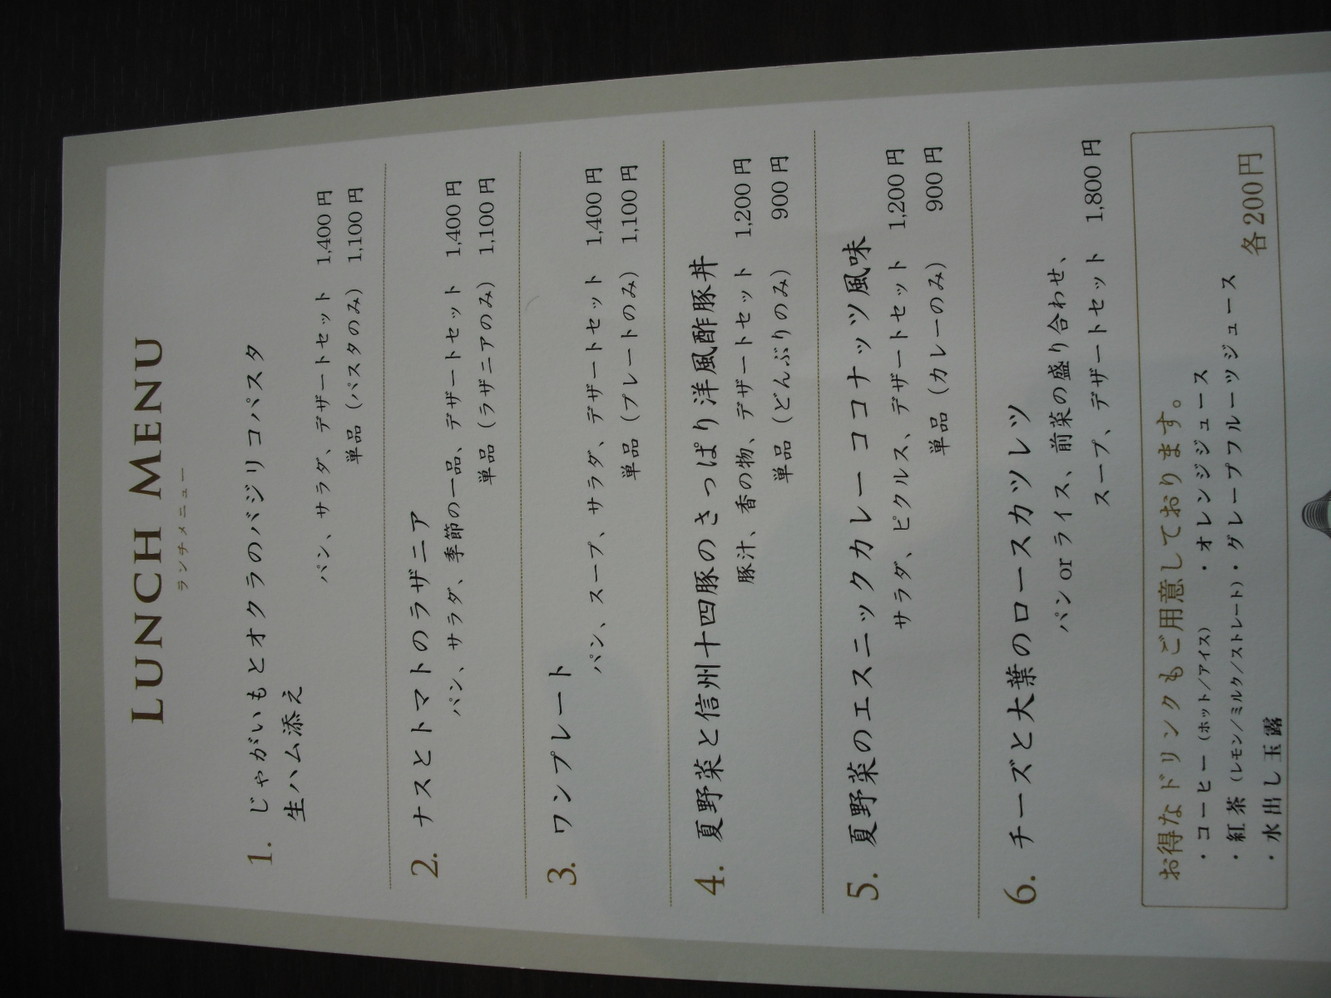 LUNCH MENU
ランチメニュー
1. じゃがいもとオクラのバジリコパスタ
生ハム添え
パン、サラダ、デザートセット 1,400 円
単品（パスタのみ） 1,100 円
2. ナスとトマトのラザニア
パン、サラダ、季節の一品、デザートセット 1,400 円
単品（ラザニアのみ） 1,100 円
3. ワンプレート
パン、スープ、サラダ、デザートセット 1,400 円
単品（プレートのみ） 1,100 円
4. 夏野菜と信州十四豚のさっぱり洋風酢豚丼
豚汁、香の物、デザートセット 1,200 円
単品（どんぶりのみ） 900 円
5. 夏野菜のエスニックカレー ココナッツ風味
サラダ、ピクルス、デザートセット 1,200 円
単品（カレーのみ） 900 円
6. チーズと大葉のロースカツレツ
パン or ライス、前菜の盛り合わせ、
スープ、デザートセット 1,800 円
お得なドリンクもご用意しております。
・コーヒー（ホット/アイス） ・オレンジジュース
・紅茶（レモン/ミルク/ストレート）・グレープフルーツジュース
・水出し玉露 各200円